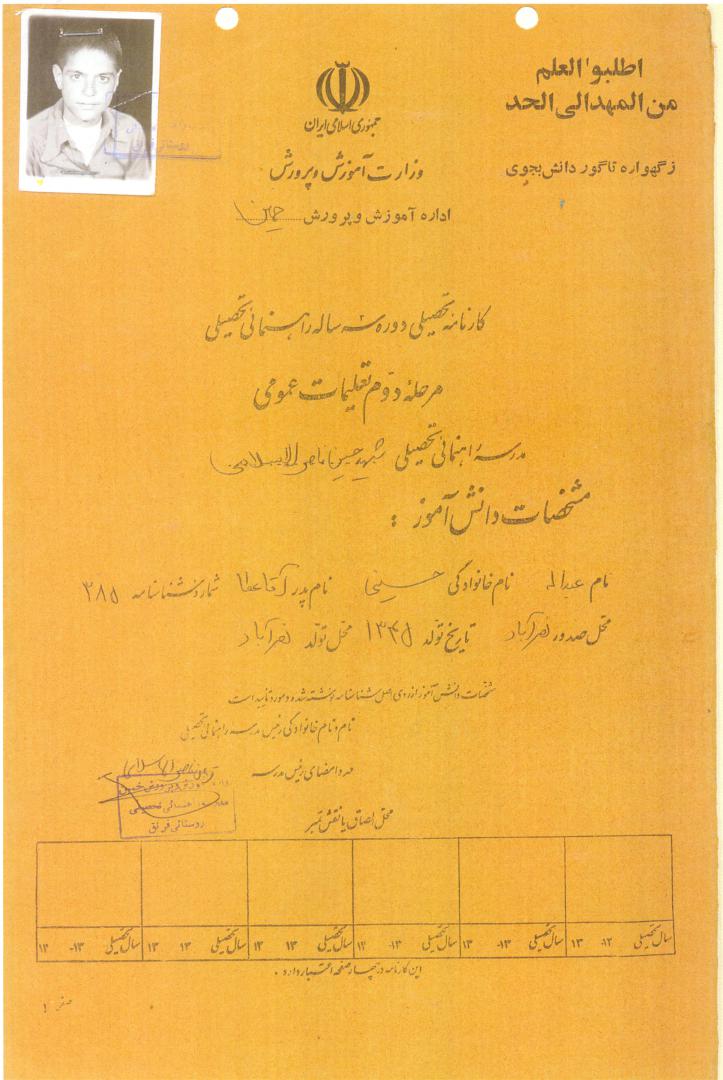 اطلبوا العلم
من المهد الی الحد
ز گهواره تا گور دانش بجوی
جمهوری اسلامی ایران
وزارت آموزش و پرورش
اداره آموزش و پرورش خمین
کارنامه تحصیلی دوره سه ساله راهنمائی تحصیلی
مرحله دوم تعلیمات عمومی
مدرسه راهنمائی تحصیلی شهید حسین ناصرالاسلامی
مشخصات دانش آموز :
نام عبداله نام خانوادگی حسینی نام پدر آقاعطا شماره شناسنامه ۳۸۵
محل صدور نصرآباد تاریخ تولد ۱۳۴۵ محل تولد نصرآباد
مشخصات دانش آموز از روی اصل شناسنامه نوشته شده و مورد تایید است
نام و نام خانوادگی رئیس مدرسه راهنمائی تحصیلی
مهر و امضای رئیس مدرسه
آموزش و پرورش خمین
مدرسه راهنمائی تحصیلی
روستائی فرنق
محل الصاق یا نقش تمبر
سال تحصیلی ۱۳- ۱۳ سال تحصیلی ۱۳- ۱۳ سال تحصیلی ۱۳- ۱۳ سال تحصیلی ۱۳ ۱۳ سال تحصیلی ۱۳ ۱۳ سال تحصیلی ۱۳- ۱۳
این کارنامه در چهار صفحه اعتبار دارد .
صفحه ۱